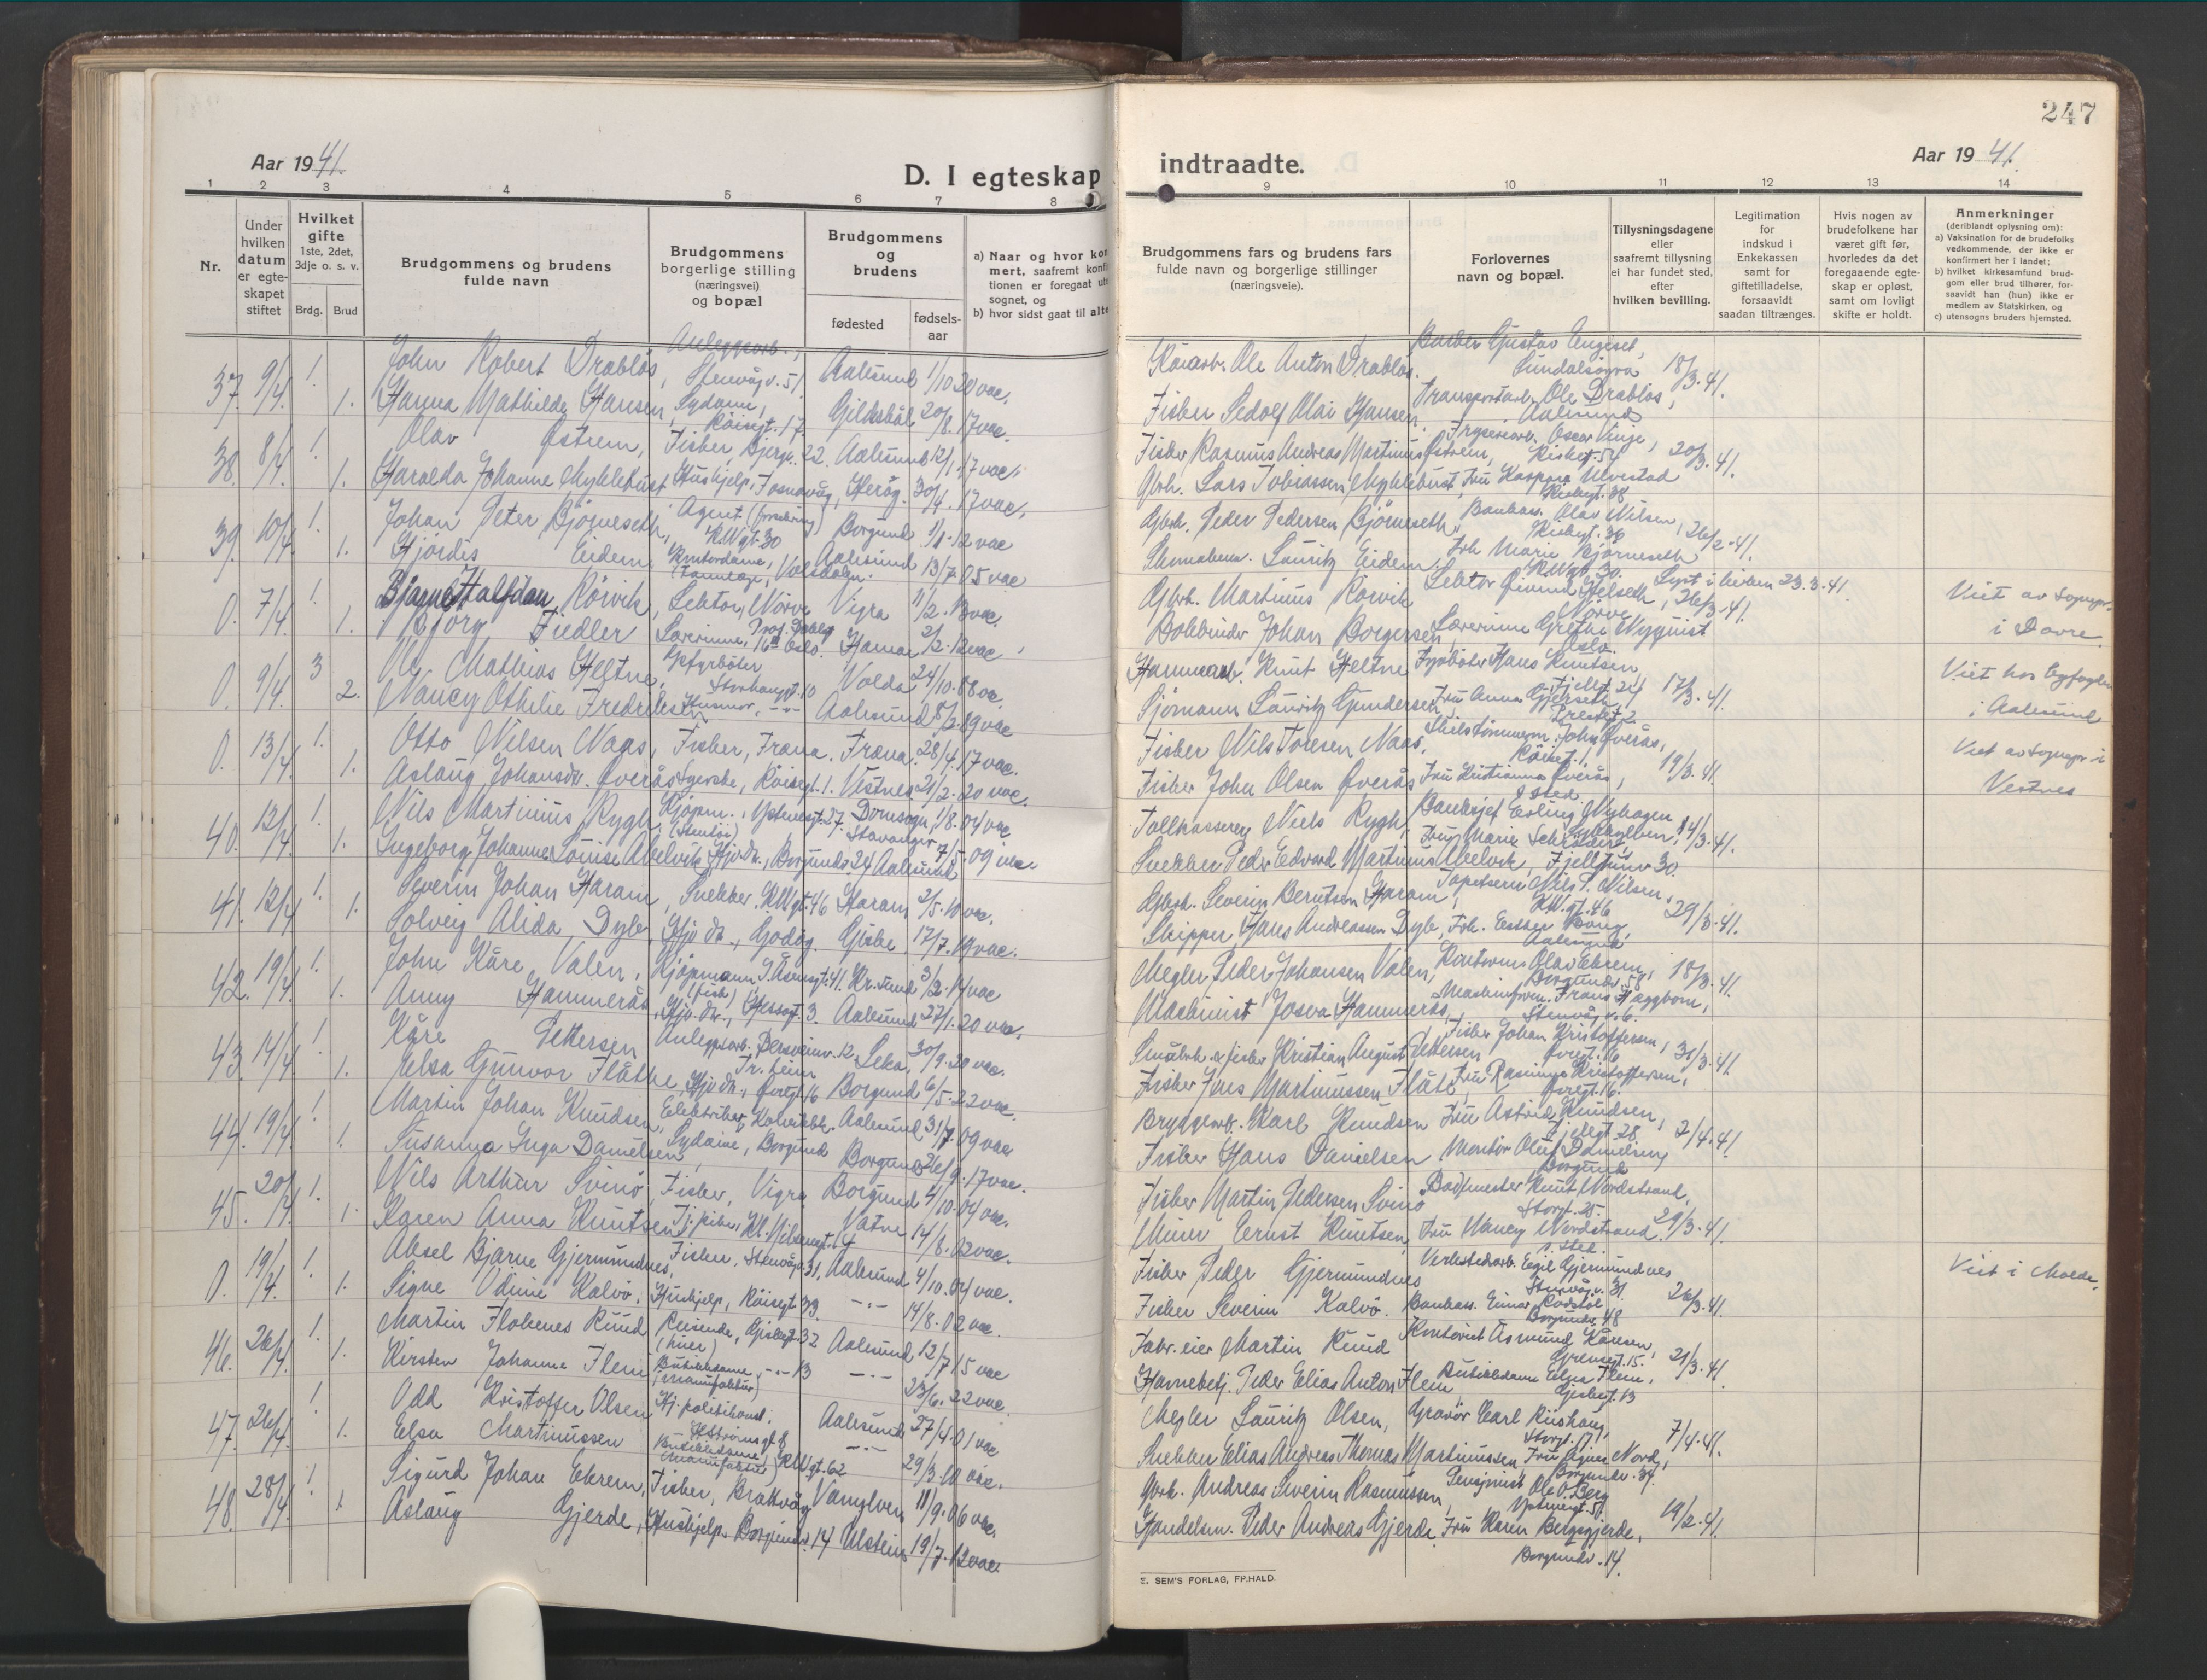 247
Aar 1941.
D. I egteskap indtraadte.
Aar 1941.
1 2 3 4 5 6 7 8 9 10 11 12 13 14
Nr.
Under hvilken datum er egteskapet stiftet
Hvilket gifte
1ste, 2det, 3dje o. s. v.
Brdg. Brud
Brudgommens og brudens fulde navn
Brudgommens borgerlige stilling (næringsvei) og bopæl
Brudgommens og brudens
fødested
fødsels-aar
a) Naar og hvor
mert, saafremt
tionen er foregaat
sognet, og
b) hvor sidst gaat til
Brudgommens fars og brudens fars fulde navn og borgerlige stillinger (næringsveie).
Forlovernes navn og bopæl.
Tillysningsdagene eller saafremt tillysning ei har fundet sted, efter hvilken bevilling.
Legitimation for indskud i Enkekassen samt for giftetilladelse, forsaavidt saadan tiltrænges.
Hvis nogen av brudefolkene har været gift før, hvorledes da det foregaaende egteskap er opløst, samt om lovligt skifte er holdt.
Anmerkninger
(deriblandt oplysning om):
a) Vaksination for de brudefolks vedkommende, der ikke er konfirmert her i landet;
b) hvilket kirkesamfund brudgom eller brud tilhører, forsaavidt han (hun) ikke er medlem av Statskirken, og
c) utensogns bruders hjemsted.
37. 9/4. 1. John Robert Drabløs, Anleggsarb., Stenvåg v. 51. Aalesund 1/10 20 vac. Ole Anton Drabløs. Barber Gustav Engeset, Sundalsøyra 18/3. 41.
1. Hanna Mathilde Hansen, Sydame, Røisegt. 17. Gildeskål 20/8. 17 vac. Fisker Sedolf Olai Hansen. Transportarb. Ole Drabløs, Aalesund
38. 8/4. 1. Olav Østrem, Fisker, Bjergv. 22. Aalesund 12/1. 17 vac. Fisker Rasmus Andreas Martinus Østrem, Fryseriarb. Oscar Vinje, 20/3. 41.
1. Haralda Johanne Myklebust Hushjelp, Fosnavåg, Herøy. 30/4. 17 vac. Gbrh. Lars Tobiassen Myklebust, Fru Kaspara Ulvestad
39. 10/4. 1. Johan Peter Bjørneseth, Agent (forsikring) K.W.gt. 30 Borgund 1/1. 12 vac Gbrh. Peder Pedersen Bjørneseth. Bankass. Olav Nilsen, 26/2. 41.
1. Hjørdis Eidem Kontordame, (Tannlæge, Volsdalen. Aalesund 13/7. 05 vac Lauritz Eidem. Frk. Marie Bjørneseth K.W.gt. 30.
0. 7/4. 1. Bjarne Halfdan Rörvik, Lektor, Nörve Vigra 11/2. 13 vac. Gbrh. Martinus Rörvik Lektor Øivind Helseth, Nörve, 26/3. 41. Lyst i kirken 23.3.41. Viet av sognepr.
1. Bjørg Fiedler Lærerinne, Prof. Dahlsgt. 16 Oslo. Hamar 2/2. 12 vac Johan Borgersen, Lærerinne Grethe Nyquist Oslo. i Dovre
0. 9/4. 3 Ole Mathias Heltne, Fyrbøter Storhaugt. 10 Volda 24/10. 88 vac. Hammerarb. Knut Heltne Fyrbøter Hans Knutsen, Fjellgt. 24 17/3. 41. Viet hos byfogden
2. Nancy Othelie Fredriksen Husmor, -"- Aalesund 8/2. 89 vac Sjømann Lauritz Gundersen, Fru Anna Gjerseth, i Aalesund
0. 13/4. 1. Otto Nilsen Naas, Fisker, Fræna. Fræna. 28/4. 17 vac. Fisker Nils Toresen Naas, Skibstømmerm. John Øverås, Röisegt. 1. 19/3. 41. Viet av sognepr. i
1. Aslaug Johansdr. Øverås Syerske, Röisegt. 1. Vestnes. 21/2. 20 vac. Fisker John Olsen Øverås Fru Kristianna Øverås, I sted. Vestnes
40. 12/4. 1. Nils Martinius Rygh, Kjøpm., Domsogn, Stavanger 1/8. 04 vac Tollkasserer Niels Rygh, Banksjef Erling Myhagen Sykkylven, 14/3. 41.
1. Ingeborg Johanne Louise Abelvik Hjv. dtr., Borgundv. 24 Aalesund 7/5. 09 vac. Snekker Peder Edvard Martinus Abelvik, Fru Marie Schrøder, Fjelltunv 30.
41. 12/4. 1. Severin Johan Haram, Snekker. K.W.gt. 46 Haram 2/5. 10 vac. Gbrh. Severin Berntsen Haram, Tapetserer Nils P. Nilsen, K.W.gt. 46 29/3. 41.
1. Solveig Alida Dyb, Hjv. dtr., Godøy. Giske. 17/7. 19 vac. Skipper Hans Andreassen Dyb, Frk. Esther Aalesund
42. 19/4. 1. John Kåre Valen, Kjøpmann, (fisk) Kr.sund 3/2. 14 vac Megler Peder Johansen Valen, Olav Ekrem, Borgundv. 58 18/3. 41.
1. Anny Hammerås, Hjv. dtr., Hessagt. 3. Aalesund 27/1. 20 vac. Maskinist Josva Hammerås, Frans Hæggbom, Stenvåg v. 6.
43. 14/4. 1. Kåre Pettersen Anleggsarb. Tr.heim Leka. 30/9. 20 vac. Småbrh. & fisker Kristian August Pettersen Fisker Johan Kristoffersen, 31/3. 41.
1. Elsa Gunvor Flåthe, Hjv. dtr., 16 Borgund 6/5. 22 vac. Fisker Jens Martinussen Flåte, Fru Rasmine Kristoffersen,
44. 19/4. 1. Martin Johan Knudsen, Elektriker, Aalesund 31/7. 09 vac Bryggearb. Karl Knudsen Fru Astrid Knudsen, Fjellgt. 28 2/4. 41.
1. Susanna Inga Danielsen, Sydame, Borgund Borgund 26/9. 17 vac. Fisker Hans Danielsen Montør Oluf Danielsen, Borgund
45. 20/4. 1. Nils Arthur Svinö, Fisker, Vigra Borgund 4/10. 04 vac. Fisker Martin Pedersen Svinö Badmester Knut Nordstrand, Storgt. 25. 29/3. 41.
1. Karen Anna Knutsen, Kl. Nilsensgt. 14 Vatne 14/8. 02 vac. Minør Ernst Knutsen, Fru Nancy Nordstrand. I sted.
0. 19/4. 1. Aksel Bjarne Gjermundnes, Fisker, Stenvågv. 31, Aalesund 4/10. 04 vac. Fisker Peder Gjermundnes Verkstedarb. Egil Gjermundnes Stenvåg v. 31 26/3. 41. Viet i Molde.
1. Signe Odine Kalvö, Hushjelp, Röisegt. 33 -"- 14/8. 02 vac. Fisker Severin Kalvö. Bankass. Einar Rödstöl Borgundv. 48
46. 26/4. 1. Martin Flokenes Ruud Reisende, Giskegt. 32 Aalesund 12/7 15 vac Fabr.eier Martin Ruud Kontorist Åsmund Kåresen, Grensegt. 15. 21/3. 41.
1. Kirsten Johanne Flem Butikkdame, (manufaktur) -"- 13 -"- 23/6. 22 vac. Havnebetj. Peder Elias Anton Flem, Butikkdame Edna Flem, Giskegt. 13
47. 26/4. 1. Odd Kristoffer Olsen Hj. politikonst. Aalesund 27/4. 01 vac Megler Lauritz Olsen, Gravör Carl Riishaug, Storgt. 17 7/4. 41.
1. Elsa Martinussen Butikkdame, (manufaktur) K.W.gt. 62 -"- 29/3. 10 vac. Snekker Elias Andreas Thomas Martinussen, Fru Agnes Nord, Borgundv. 34.
48. 28/4. 1. Sigurd Johan Ekrem, Fisker, Brattvåg Vanylven 11/9. 06 vac. Gbrh. Andreas Severin Rasmussen Pensjonist Ole O. Berg 19/2. 41.
1. Aslaug Gjerde, Hushjelp. Borgundv. 14 Ulstein 19/7. 12 vac. Handelsm. Peder Andreas Gjerde. Fru Karen Bergsgjerde, Borgundv. 14.
E. SEM'S FORLAG, FR.HALD.